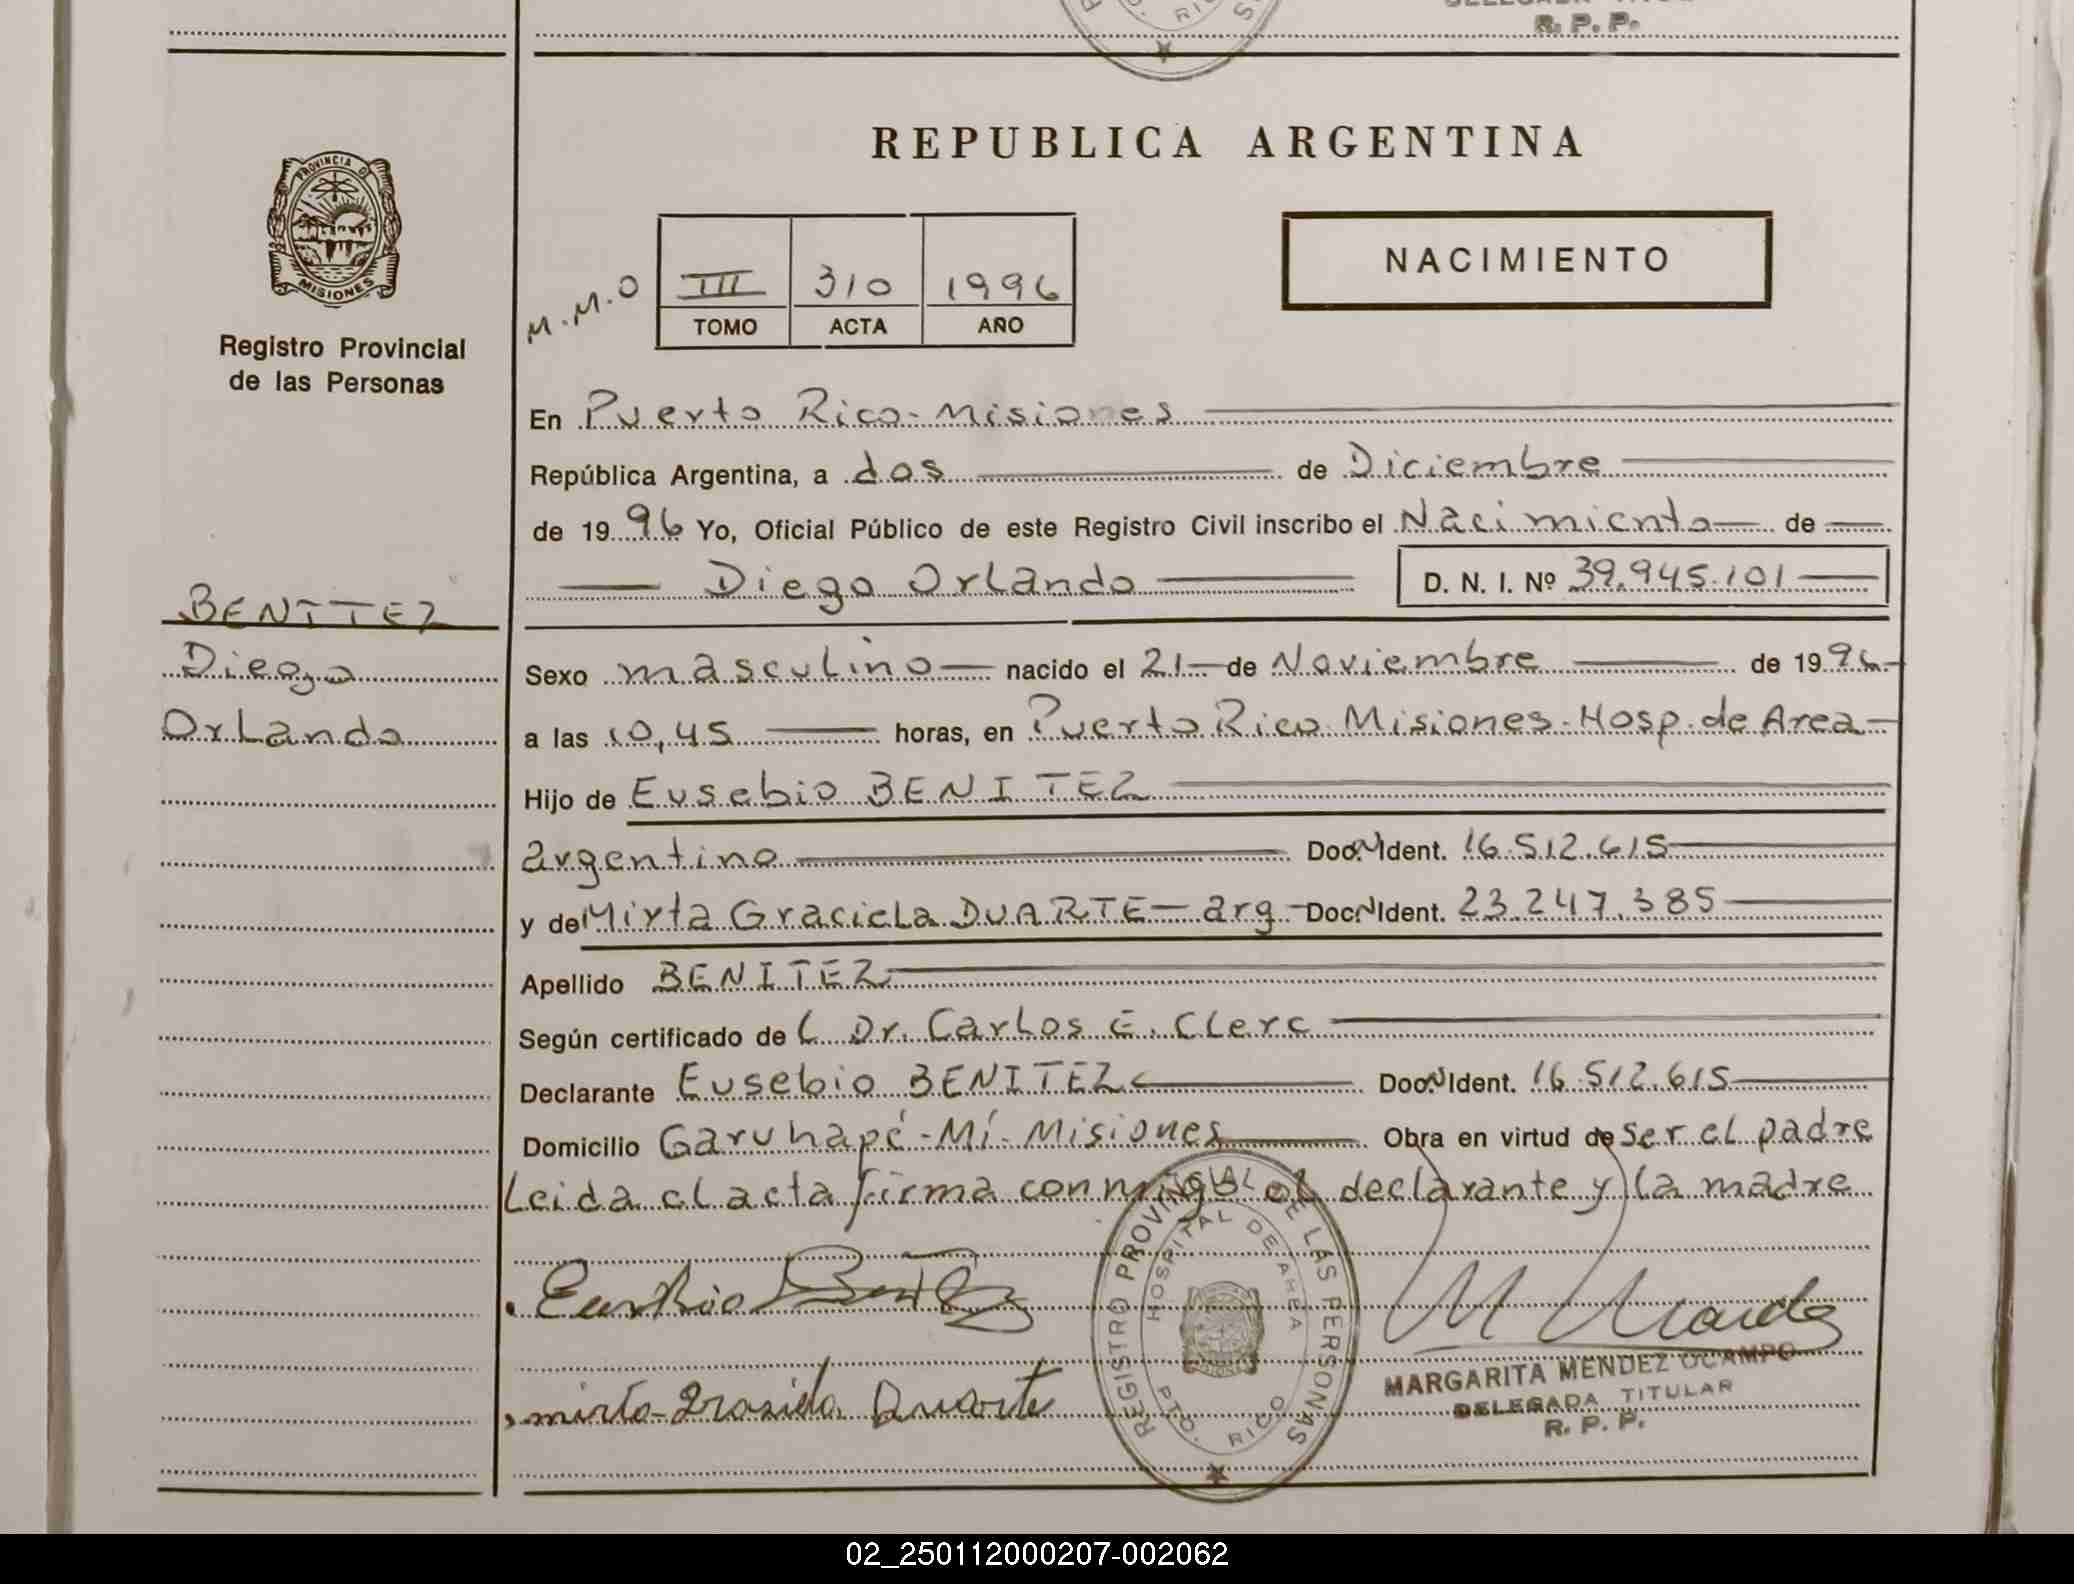 R. P. P.
PROVINCIA DE
MISIONES
Registro Provincial
de las Personas
REPUBLICA ARGENTINA
NACIMIENTO
M.M.O
III 310 1996
TOMO ACTA AÑO
En Puerto Rico - Misiones
República Argentina, a dos de Diciembre
de 19 96 Yo, Oficial Público de este Registro Civil inscribo el Nacimiento de
Diego Orlando D. N. I. Nº 39.945.101
BENITEZ
Diego
Orlando
Sexo masculino nacido el 21 de Noviembre de 19 96
a las 10,45 horas, en Puerto Rico Misiones. Hosp. de Area
Hijo de Eusebio BENITEZ
argentino Doc. N Ident. 16.512.615
y de Mirta Graciela DUARTE - arg - Doc. N Ident. 23.247.385
Apellido BENITEZ
Según certificado de L Dr. Carlos E. Clerc
Declarante Eusebio BENITEZ Doc. N Ident. 16.512.615
Domicilio Garuhapé - Mí - Misiones Obra en virtud de ser el padre
Leida el acta firma conmigo el declarante y la madre
Eusebio Benitez
mirta graziela Duarte
REGISTRO PROVINCIAL DE LAS PERSONAS
HOSPITAL DE AREA
PTO. RICO
MARGARITA MENDEZ OCAMPO
DELEGADA TITULAR
R. P. P.
02_250112000207-002062